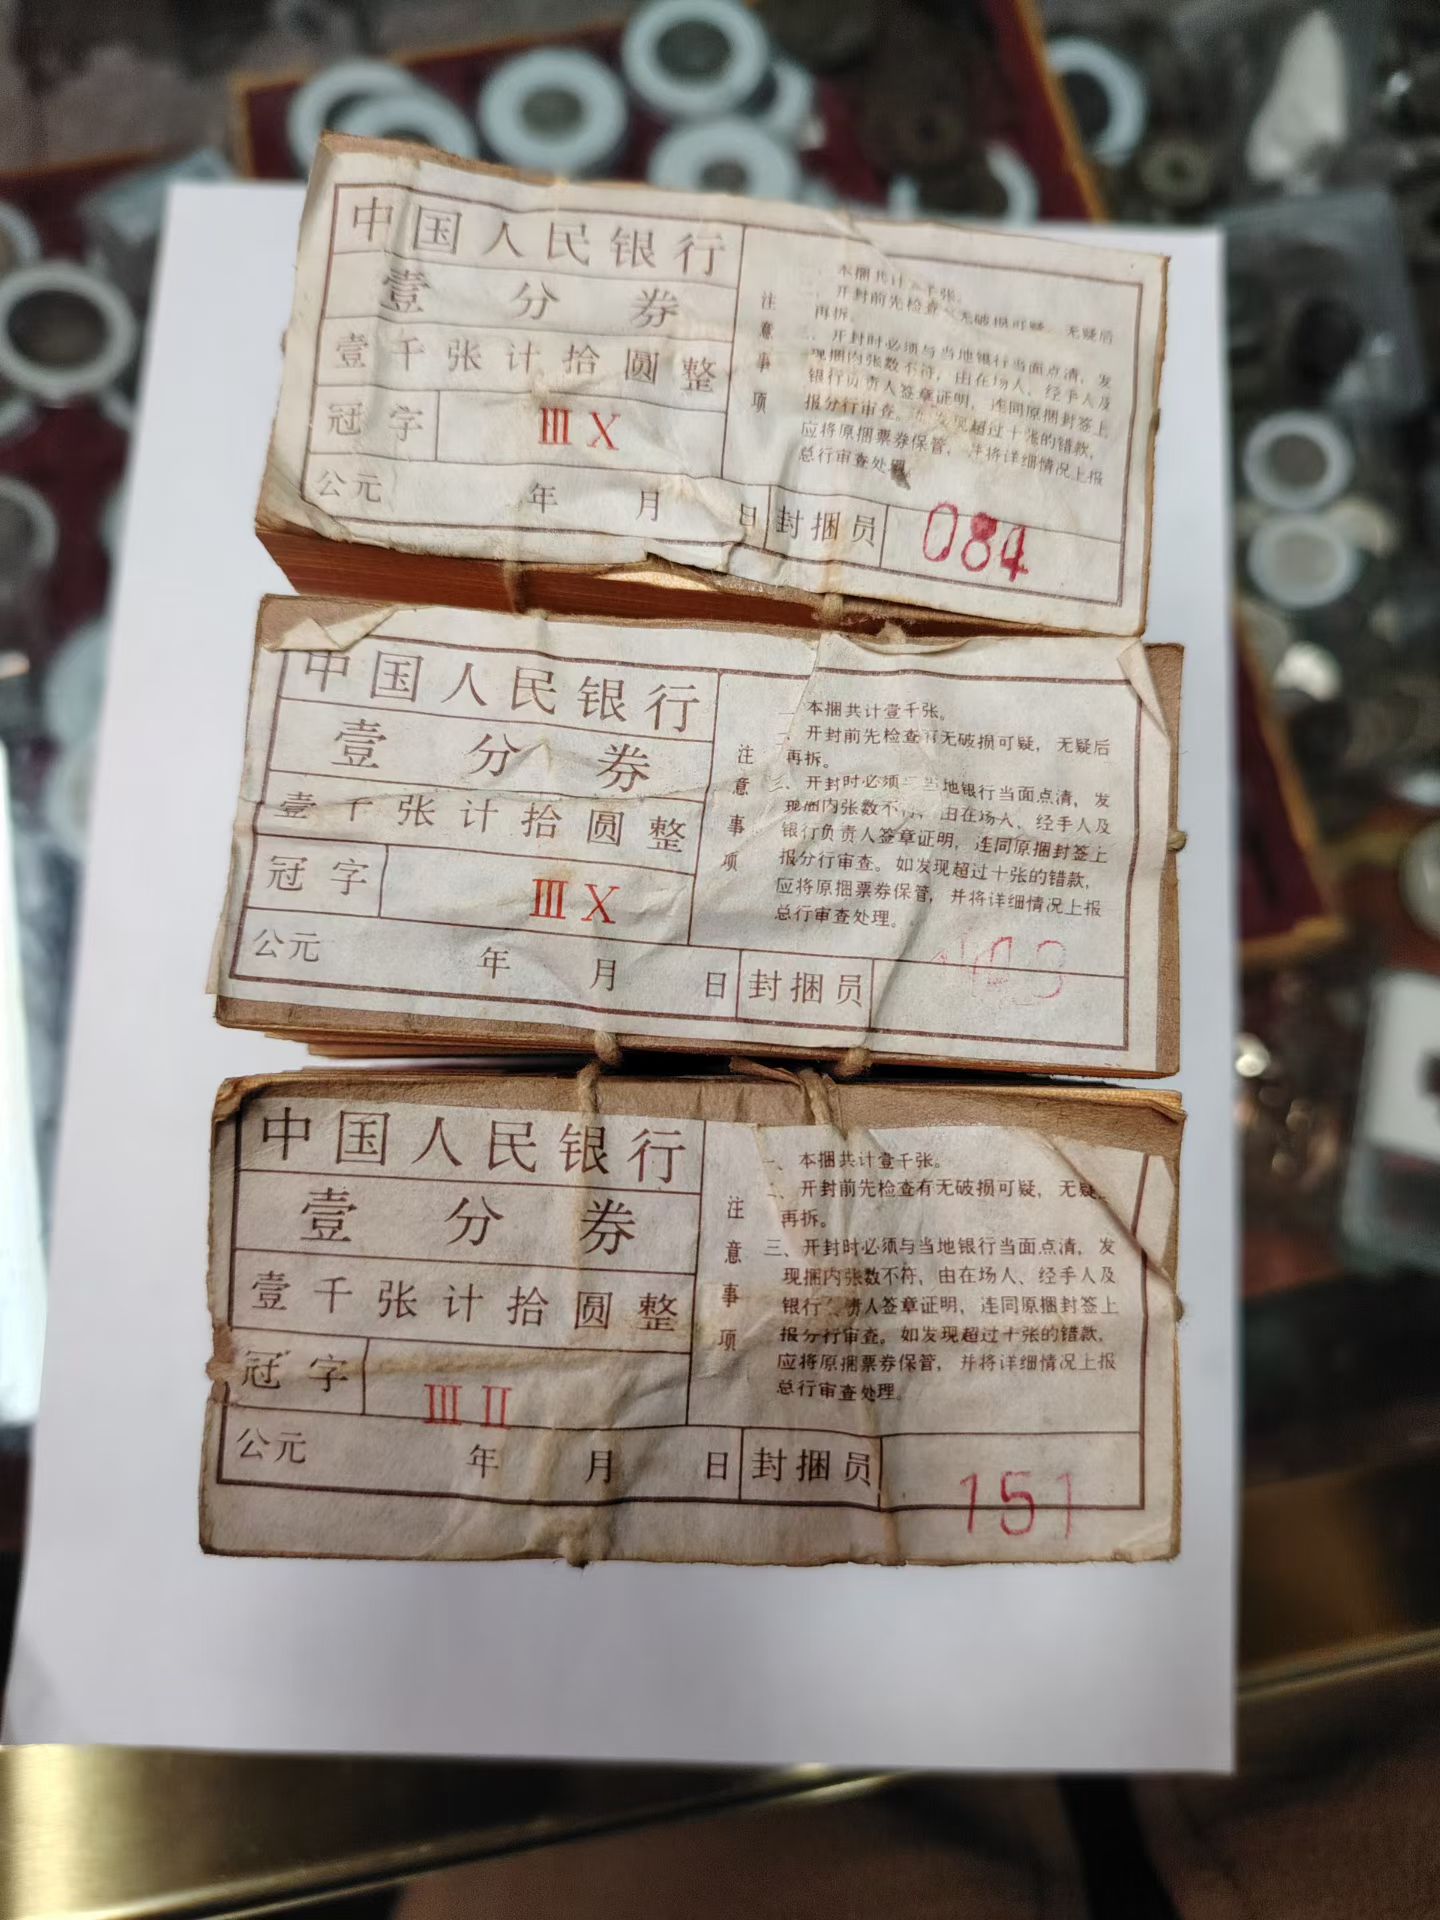 中国人民银行
壹分券
壹千张计拾圆整
冠字 ⅢⅩ
公元 年 月 日 封捆员 084
注意事项
本捆共计 千张。
开封前先检查 无破损可疑, 无疑后
再拆。
三、开封时必须与当地银行当面点清, 发
现捆内张数不符, 由在场人、经手人及
银行负责人签章证明, 连同原捆封签上
报分行审查。如发现超过十张的错款,
应将原捆票券保管, 并将详细情况上报
总行审查处理。
中国人民银行
壹分券
壹千张计拾圆整
冠字 ⅢⅩ
公元 年 月 日 封捆员
注意事项
本捆共计壹千张。
开封前先检查有无破损可疑, 无疑后
再拆。
三、开封时必须 当地银行当面点清, 发
现捆内张数不符, 由在场人、经手人及
银行负责人签章证明, 连同原捆封签上
报分行审查。如发现超过十张的错款,
应将原捆票券保管, 并将详细情况上报
总行审查处理。
中国人民银行
壹分券
壹千张计拾圆整
冠字 ⅢⅡ
公元 年 月 日 封捆员 151
注意事项
一、本捆共计壹千张。
二、开封前先检查有无破损可疑, 无疑
再拆。
三、开封时必须与当地银行当面点清, 发
现捆内张数不符, 由在场人、经手人及
银行 责人签章证明, 连同原捆封签上
报分行审查。如发现超过十张的错款,
应将原捆票券保管, 并将详细情况上报
总行审查处理。